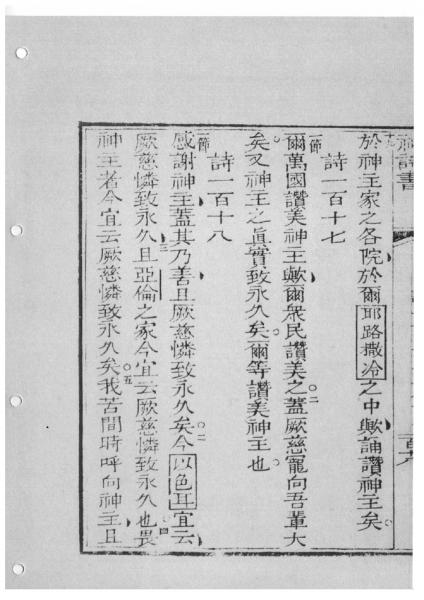 神詩書
於神主家之各院於爾耶路撒冷之中歟誦讚神主矣
詩一百十七
一節
爾萬國讚美神主歟爾衆民讚美之二蓋厥慈寵向吾輩大
矣又神主之眞實致永久矣爾等讚美神主也
詩一百十八
一節
感謝神主蓋其乃善且厥慈憐致永久矣二今以色耳宜云
厥慈憐致永久且三亞倫之家今宜云厥慈憐致永久也四畏
神主者今宜云厥慈憐致永久矣五我苦間時呼向神主且